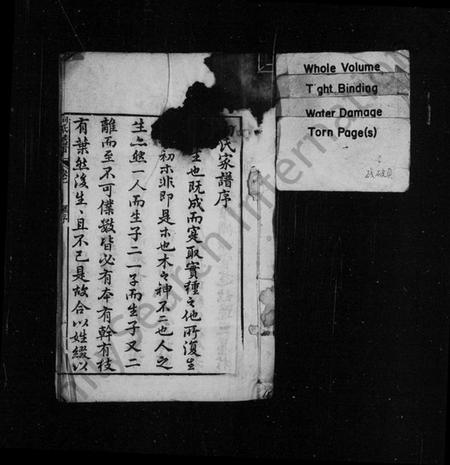 氏家譜序
生也既成而寔取實種之他所復生
初木非即是木也木之神不二也人之
生亦然一人而生子二一子而生子又二
離而至不可僕數皆必有本有幹有枝
有葉然後生生且不已是故合以姓綴以
Whole Volume
Tight Binding
Water Damage
Torn Page(s)